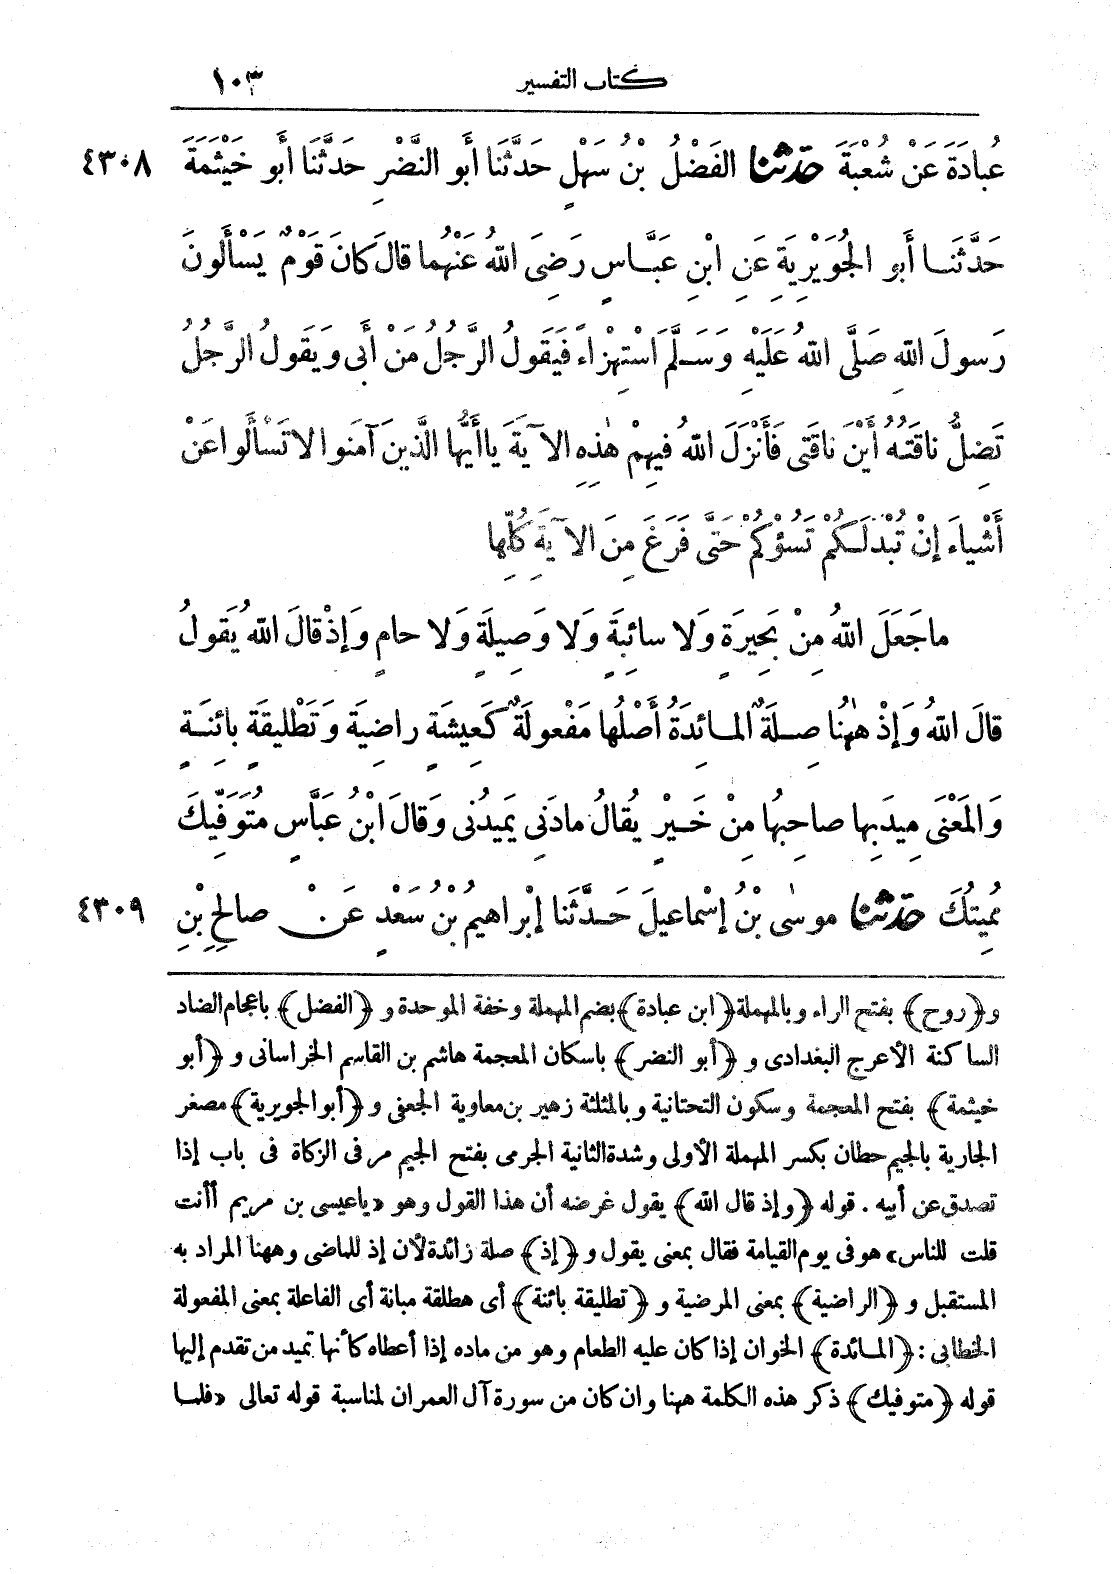 كتاب التفسير ١٠٣
عُبادَةَ عَنْ شُعْبَةَ حَدَّثَنَا الفَضْلُ بْنُ سَهْلٍ حَدَّثَنَا أَبو النَّضْرِ حَدَّثَنَا أَبو خَيْثَمَةَ ٤٣٠٨
حَدَّثَنَا أَبو الجُوَيْرِيَةِ عَنِ ابْنِ عَبَّاسٍ رَضِىَ اللهُ عَنْهُما قالَ كانَ قَوْمٌ يَسْأَلُونَ
رَسولَ اللهِ صَلَّى اللهُ عَلَيْهِ وَسَلَّمَ اسْتِهْزاءً فَيَقولُ الرَّجُلُ مَنْ أَبى ويَقولُ الرَّجُلُ
تَضِلُّ ناقَتُهُ أَيْنَ ناقَتِى فَأَنْزَلَ اللهُ فيهِمْ هٰذِهِ الآيَةَ ياأَيُّها الَّذينَ آمَنوا لاتَسْأَلُوا عَنْ
أَشْياءَ إِنْ تُبْدَلَكُمْ تَسُؤْكُمْ حَتَّى فَرَغَ مِنَ الآيَةِ كُلِّها
ماجَعَلَ اللهُ مِنْ بَحِيرَةٍ وَلا سائِبَةٍ وَلا وَصِيلَةٍ وَلا حامٍ وَإِذْ قالَ اللهُ يَقولُ
قالَ اللهُ وَإِذْ هٰهُنا صِلَةٌ المائِدَةُ أَصْلُها مَفْعولَةٌ كَعِيشَةٍ راضِيَةٍ وَتَطْلِيقَةٍ بائِنَةٍ
وَالمَعْنَى مِيدَبِها صاحِبُها مِنْ خَيْرٍ يُقالُ مادَنِى يَمِيدُنِى وَقالَ ابْنُ عَبَّاسٍ مُتَوَفِّيكَ
مُمِيتُكَ حَدَّثَنَا موسٰى بْنُ إِسْماعيلَ حَدَّثَنا إِبْراهيمُ بْنُ سَعْدٍ عَنْ صالِحِ بْنِ ٤٣٠٩
و﴿روح﴾ بفتح الراء وبالمهملة ﴿ابن عبادة﴾ بضم المهملة وخفة الموحدة و﴿الفضل﴾ باعجام الضاد
الساكنة الأعرج البغدادى و﴿أبو النضر﴾ باسكان المعجمة هاشم بن القاسم الخراسانى و﴿أبو
خيثمة﴾ بفتح المعجمة وسكون التحتانية وبالمثلثة زهير بن معاوية الجعفى و﴿أبو الجويرية﴾ مصغر
الجارية بالجيم حطان بكسر المهملة الأولى وشدة الثانية الجرمى بفتح الجيم مر فى الزكاة فى باب إذا
تصدق عن أبيه . قوله ﴿وإذ قال الله﴾ يقول غرضه أن هذا القول وهو «ياعيسى بن مريم أأنت
قلت للناس» هو فى يوم القيامة فقال بمعنى يقول و﴿إذ﴾ صلة زائدة لأن إذ للماضى وههنا المراد به
المستقبل و﴿الراضية﴾ بمعنى المرضية و﴿تطليقة بائنة﴾ أى مطلقة مبانة أى الفاعلة بمعنى المفعولة
الخطابى : ﴿المائدة﴾ الخوان إذا كان عليه الطعام وهو من ماده إذا أعطاه كأنها تميد من تقدم إليها
قوله ﴿متوفيك﴾ ذكر هذه الكلمة ههنا وان كان من سورة آل العمران لمناسبة قوله تعالى «فلما